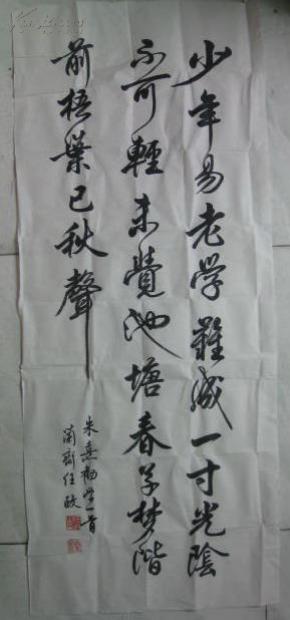 少年易老学難成一寸光陰
不可輕未覺池塘春草梦階
前梧葉已秋聲
朱熹勸学一首
蘭齋任政